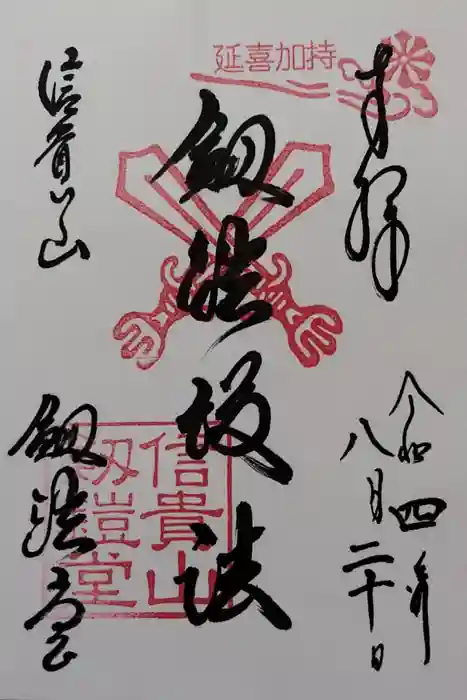 奉拝
令和四年
八月二十日
延喜加持
劔鎧護法
信貴山
劔鎧堂
信貴山
劔鎧堂